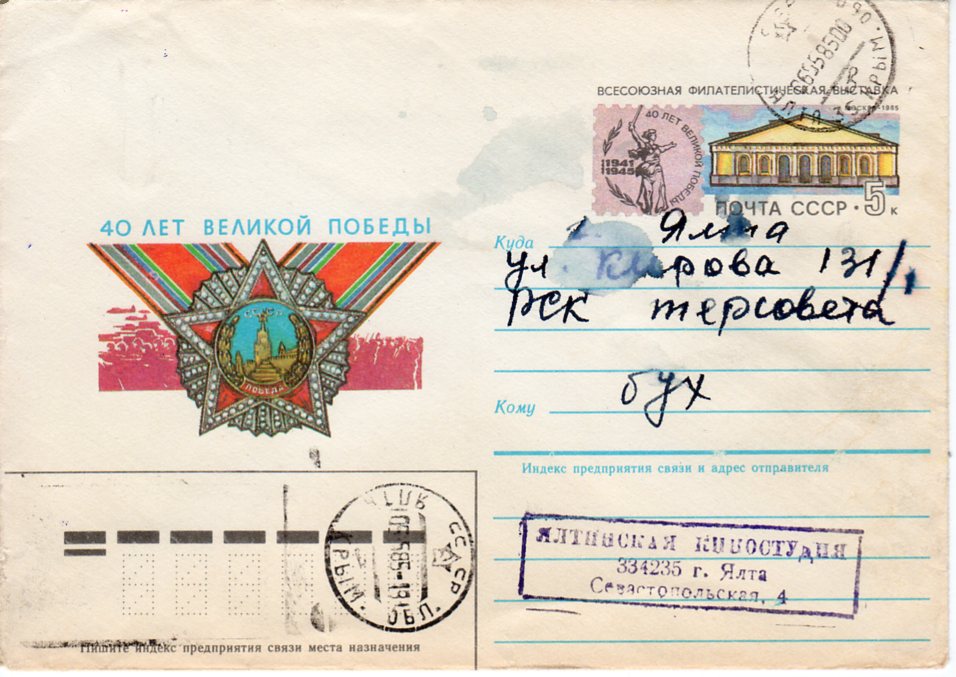 ВСЕСОЮЗНАЯ ФИЛАТЕЛИСТИЧЕСКАЯ ВЫСТАВКА
МОСКВА-1985
40 ЛЕТ ВЕЛИКОЙ ПОБЕДЫ
1941
1945
ПОЧТА СССР • 5 к
ЯЛТА
40 ЛЕТ ВЕЛИКОЙ ПОБЕДЫ
СССР
ПОБЕДА
Куда Ялта
ул. Кирова 131/
РСК терсовета
Кому бух
Индекс предприятия связи и адрес отправителя
ЯЛТИНСКАЯ КИНОСТУДИЯ
334235 г. Ялта
Севастопольская, 4
СССР
КРЫМ. ОБЛ.
Пишите индекс предприятия связи места назначения